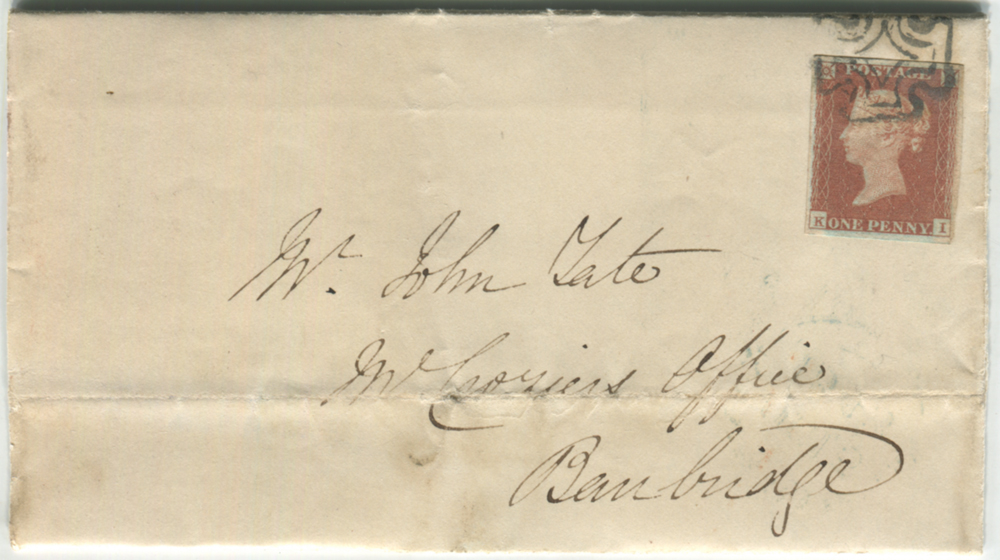 POSTAGE
K ONE PENNY I
Mr. John Tate
Mr Croziers Office
Banbridge